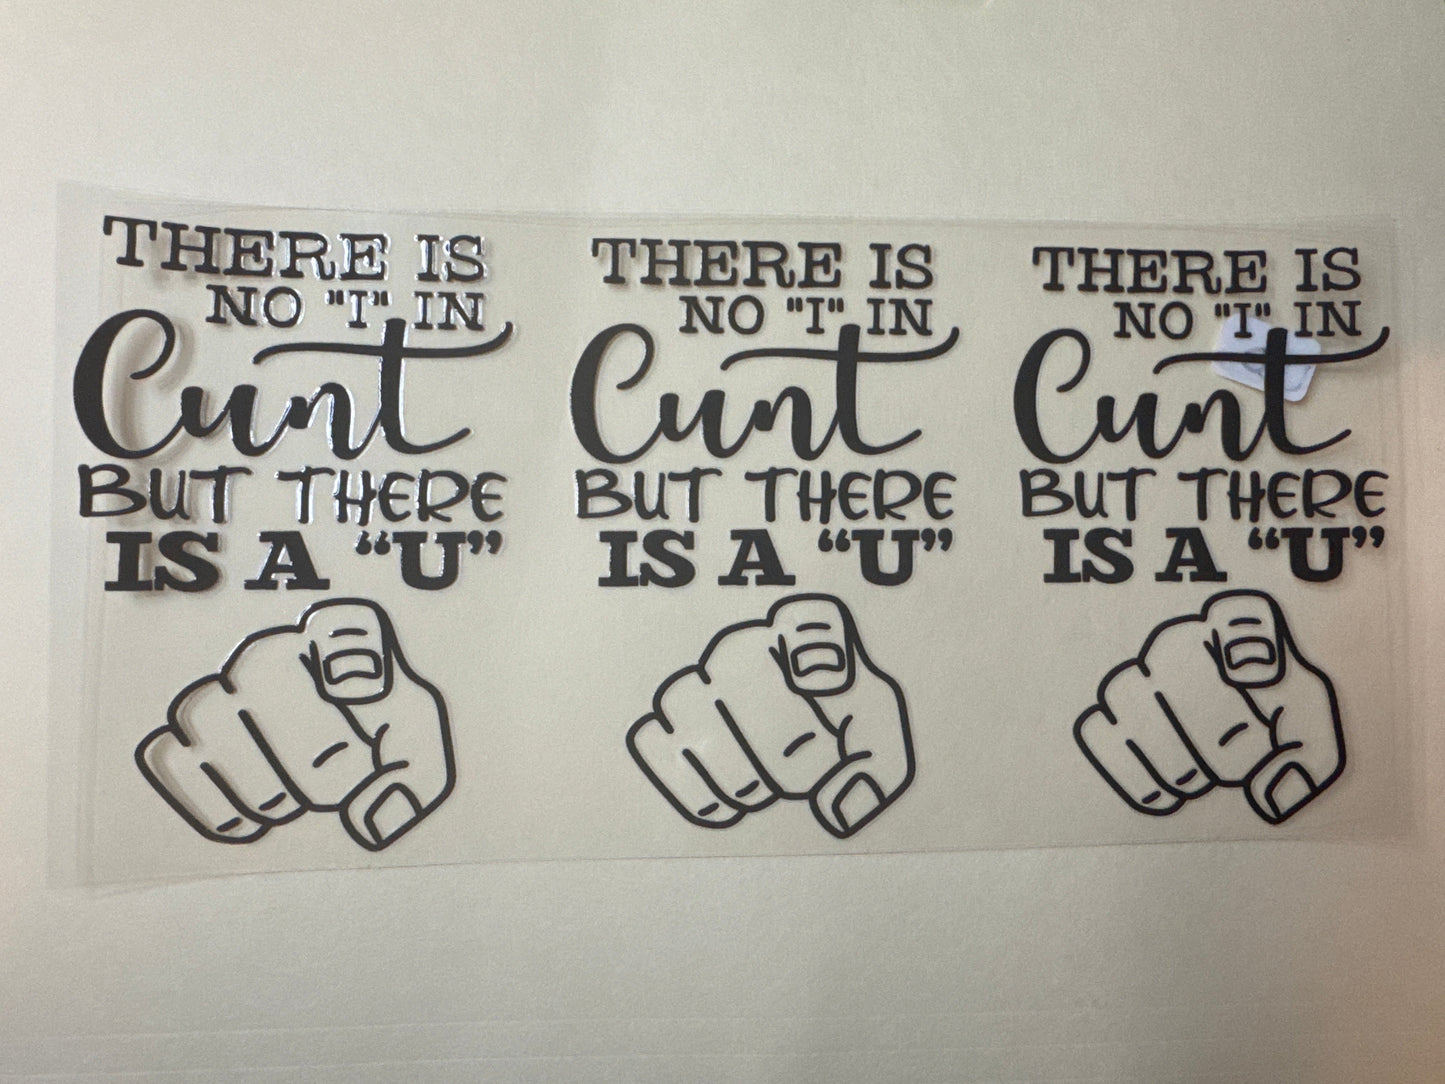 THERE IS
NO "I" IN
Cunt
BUT THERE
IS A “U”
THERE IS
NO "I" IN
Cunt
BUT THERE
IS A “U”
THERE IS
NO "I" IN
Cunt
BUT THERE
IS A “U”